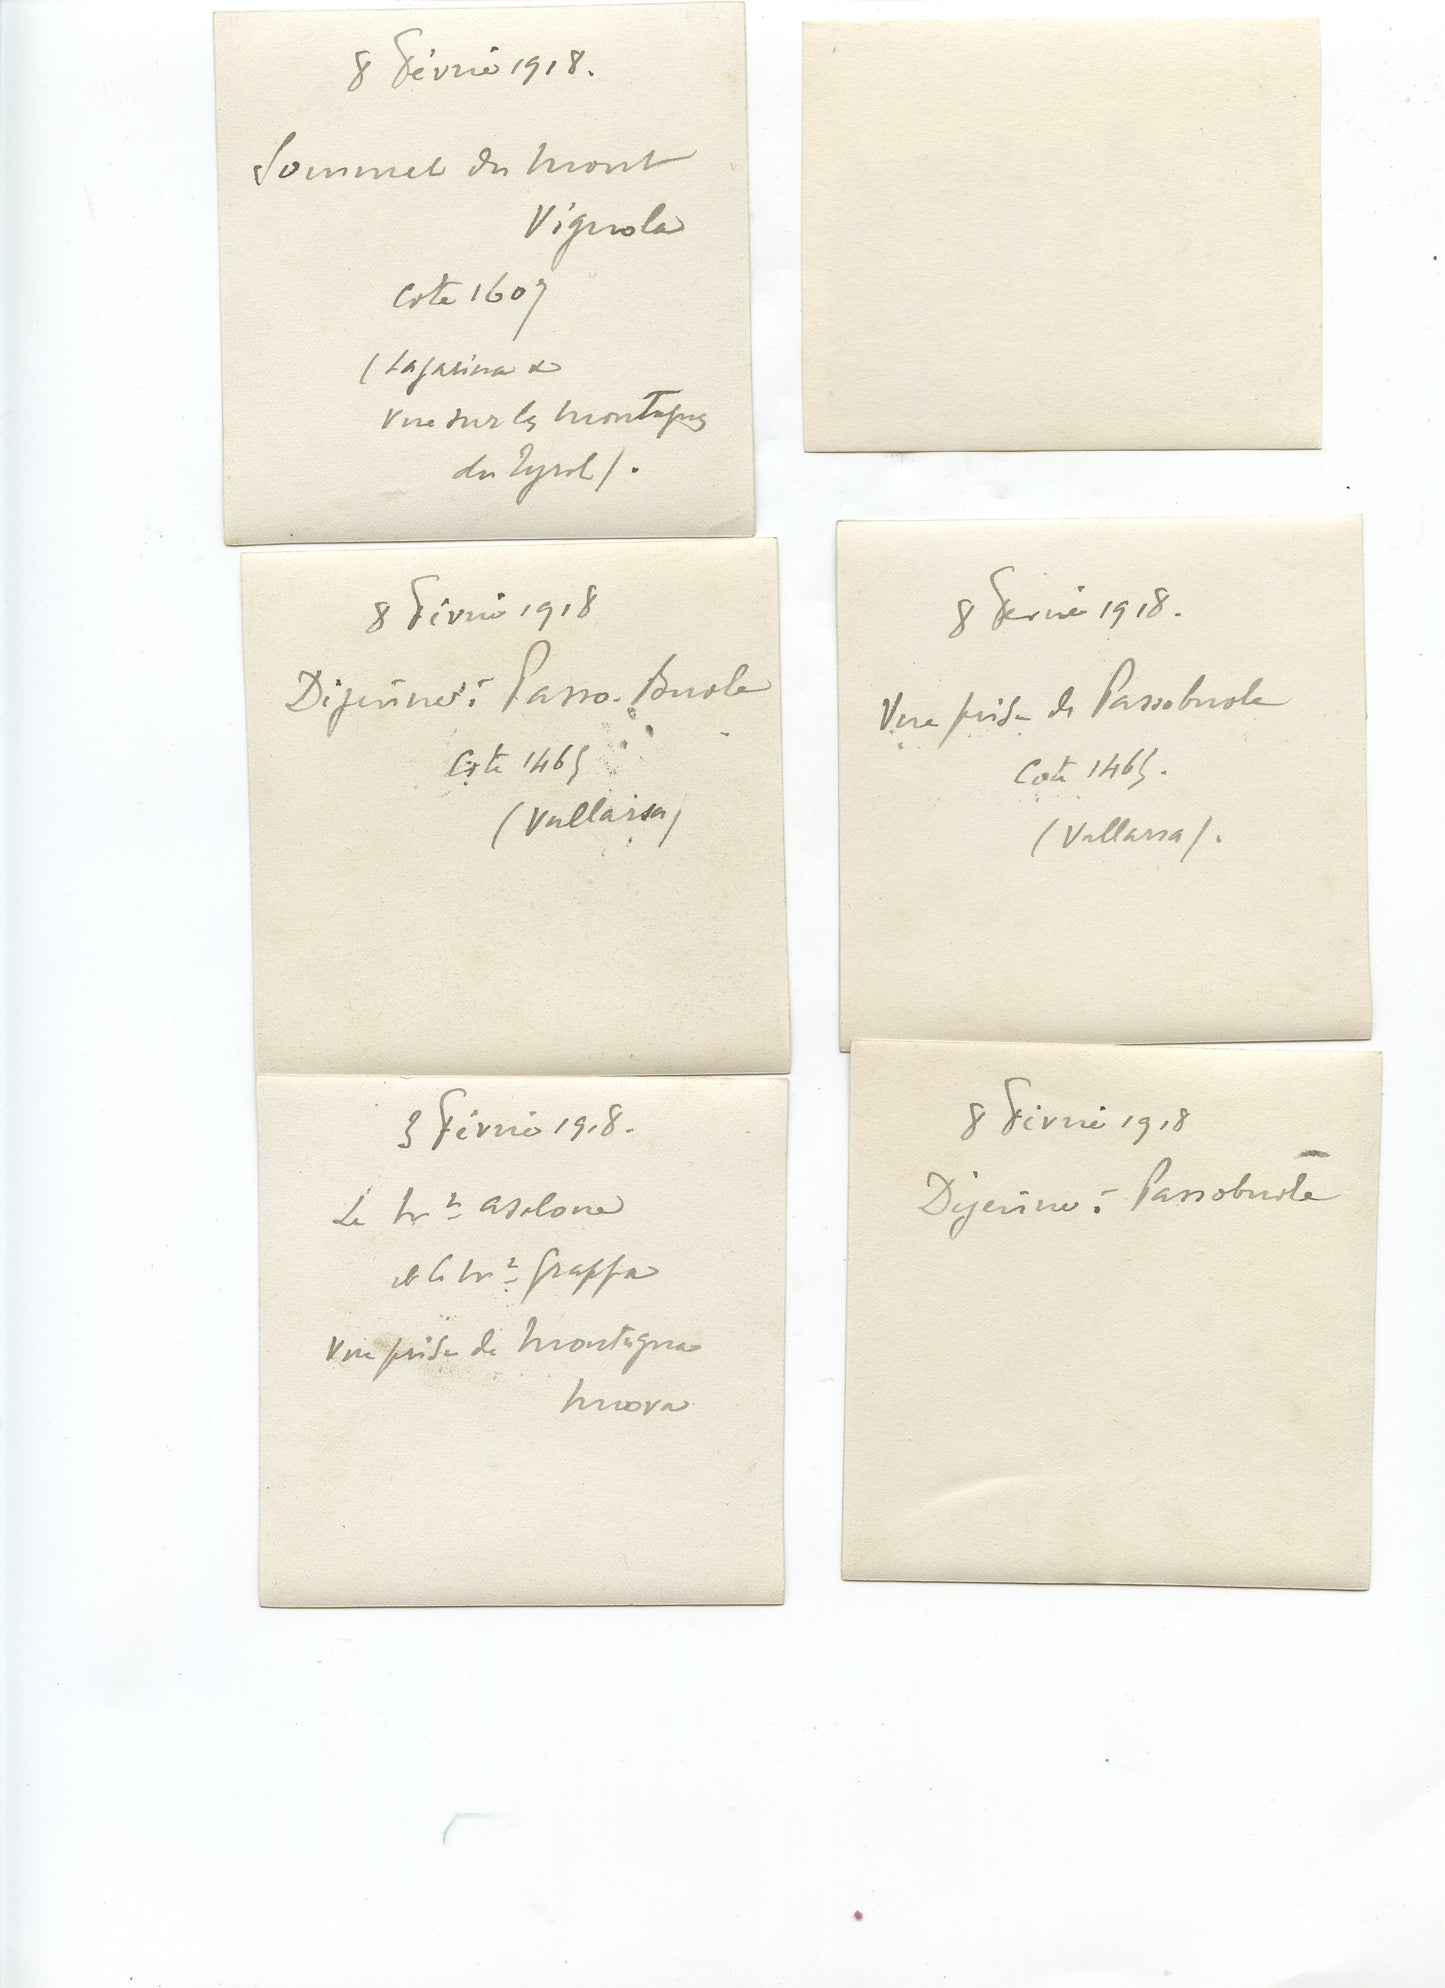 8 Février 1918.
Sommet du mont
Vignola
Cote 1607
(Lagarina et
vue sur les montagnes
du Tyrol).
8 Février 1918
Déjeuner à Passo-Buole
Cote 1465
(Vallarsa)
8 Février 1918.
Vue prise de Passobuole
Cote 1465.
(Vallarsa).
3 Février 1918.
Le Mt Asolone
et le Mt Grappa
Vue prise de Montagna
nuova
8 Février 1918
Déjeuner à Passobuole